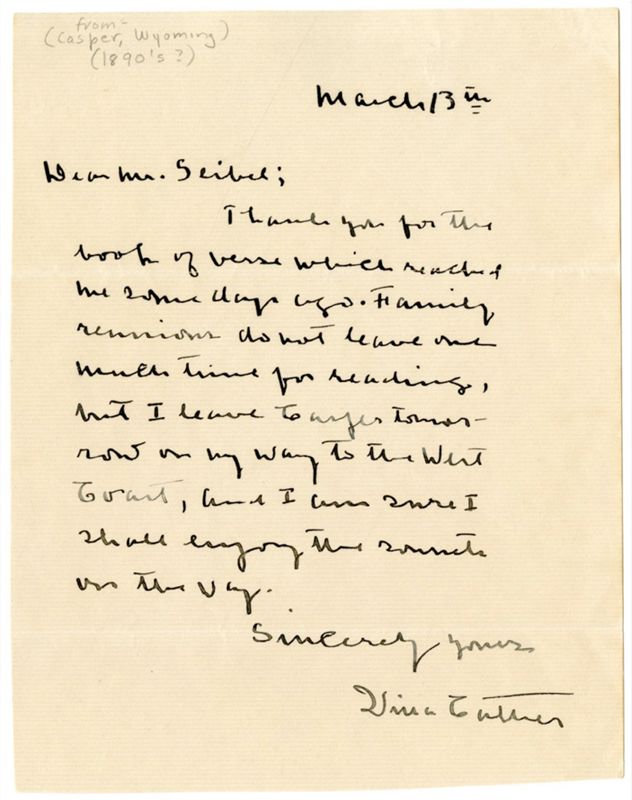 from-
(Casper, Wyoming)
(1890's?)
March 13th
Dear Mr. Seibel;
Thank you for the
book of verse which reached
me some days ago. Family
reunions do not leave one
much time for reading,
but I leave Casper tomor-
row on my way to the West
Coast, and I am sure I
shall enjoy the sonnets
on the way.
Sincerely yours
Willa Cather